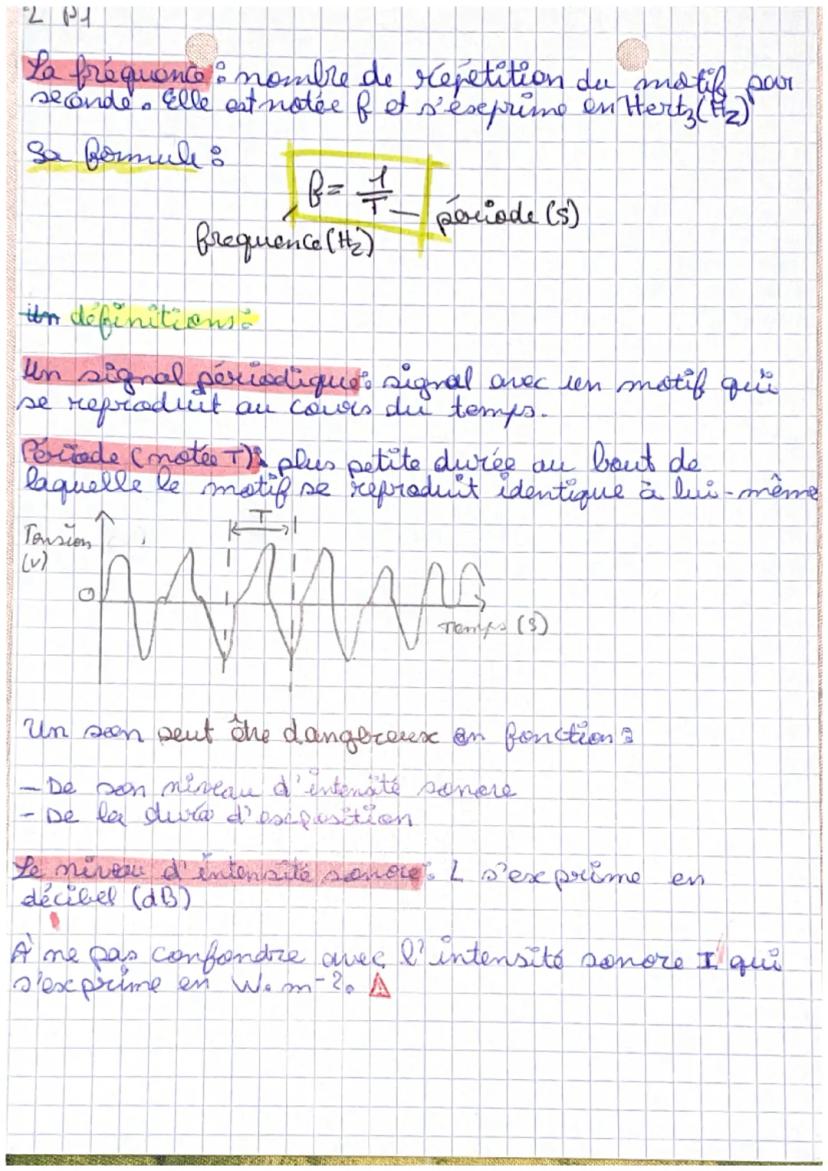 2 P1
La fréquence : nombre de répétition du motif par
seconde. Elle est notée f et s'exeprime en Hertz (Hz)
Sa formule :
f = 1/T
période (s)
frequence (Hz)
définitions :
Un signal périodique : signal avec un motif qui
se reproduit au cours du temps.
Période (notée T) : plus petite durée au bout de
laquelle le motif se reproduit identique à lui-même
T
Tension
(V)
0
Temps (s)
Un son peut être dangereux en fonction :
- De son niveau d'intensité sonore
- De la durée d'exposition
Le niveau d'intensité sonore : L s'exprime en
décibel (dB)
À ne pas confondre avec l'intensité sonore I qui
s'exprime en W.m-2. ⚠